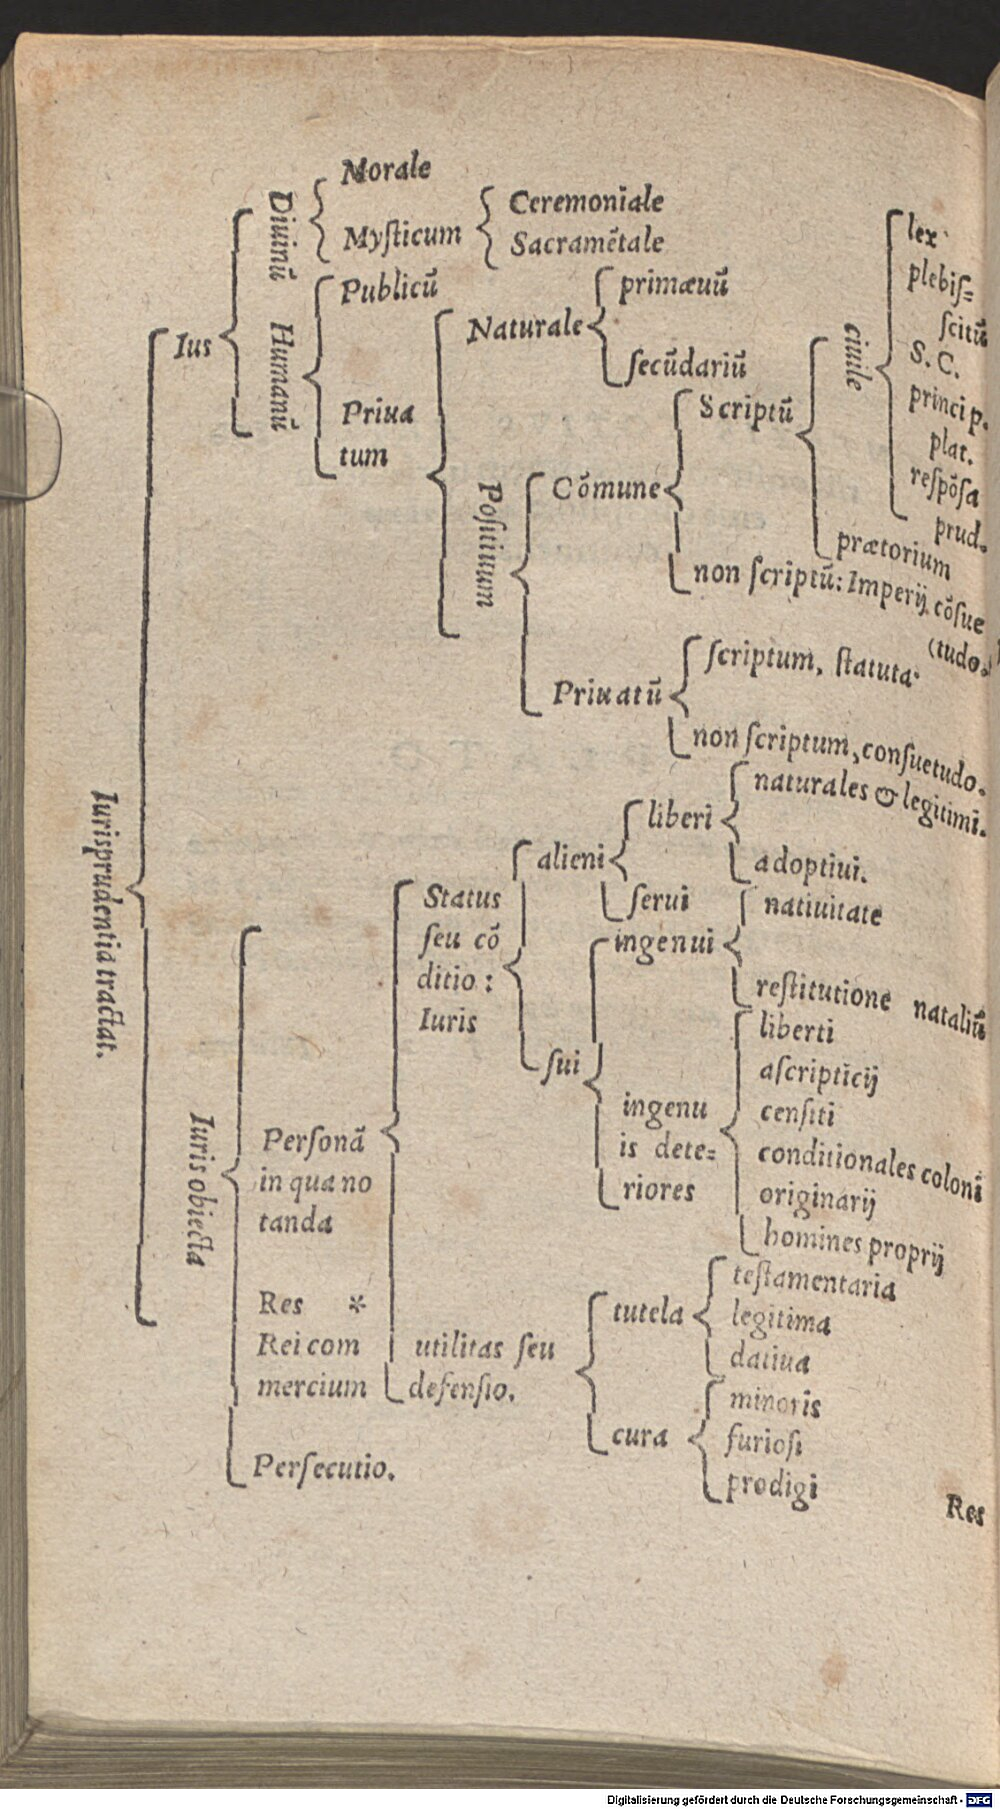 Iurisprudentia tractat.
Ius
Diuinū
Morale
Myſticum
Ceremoniale
Sacramētale
Humanū
Publicū
Priua
tum
Naturale
primæuū
ſecūdariū
Poſitiuum
Cōmune
Scriptū
ciuile
lex
plebiſ=
ſcitū
S. C.
princip.
plat.
reſpōſa
prud.
prætorium
non ſcriptū: Imperij cōſue
(tudo.
Priuatū
ſcriptum, ſtatuta
non ſcriptum, conſuetudo.
Iuris obiecta
Perſonā
in qua no
tanda
Status
ſeu cō
ditio:
Iuris
alieni
liberi
naturales & legitimi.
adoptiui.
ſerui
ſui
ingenui
natiuitate
reſtitutione nataliū
ingenu
is dete=
riores
liberti
aſcripticij
cenſiti
conditionales coloni
originarij
homines proprij
utilitas ſeu
defenſio.
tutela
teſtamentaria
legitima
datiua
cura
minoris
furioſi
prodigi
Res *
Rei com
mercium
Perſecutio.
Res
Digitalisierung gefördert durch die Deutsche Forschungsgemeinschaft - DFG